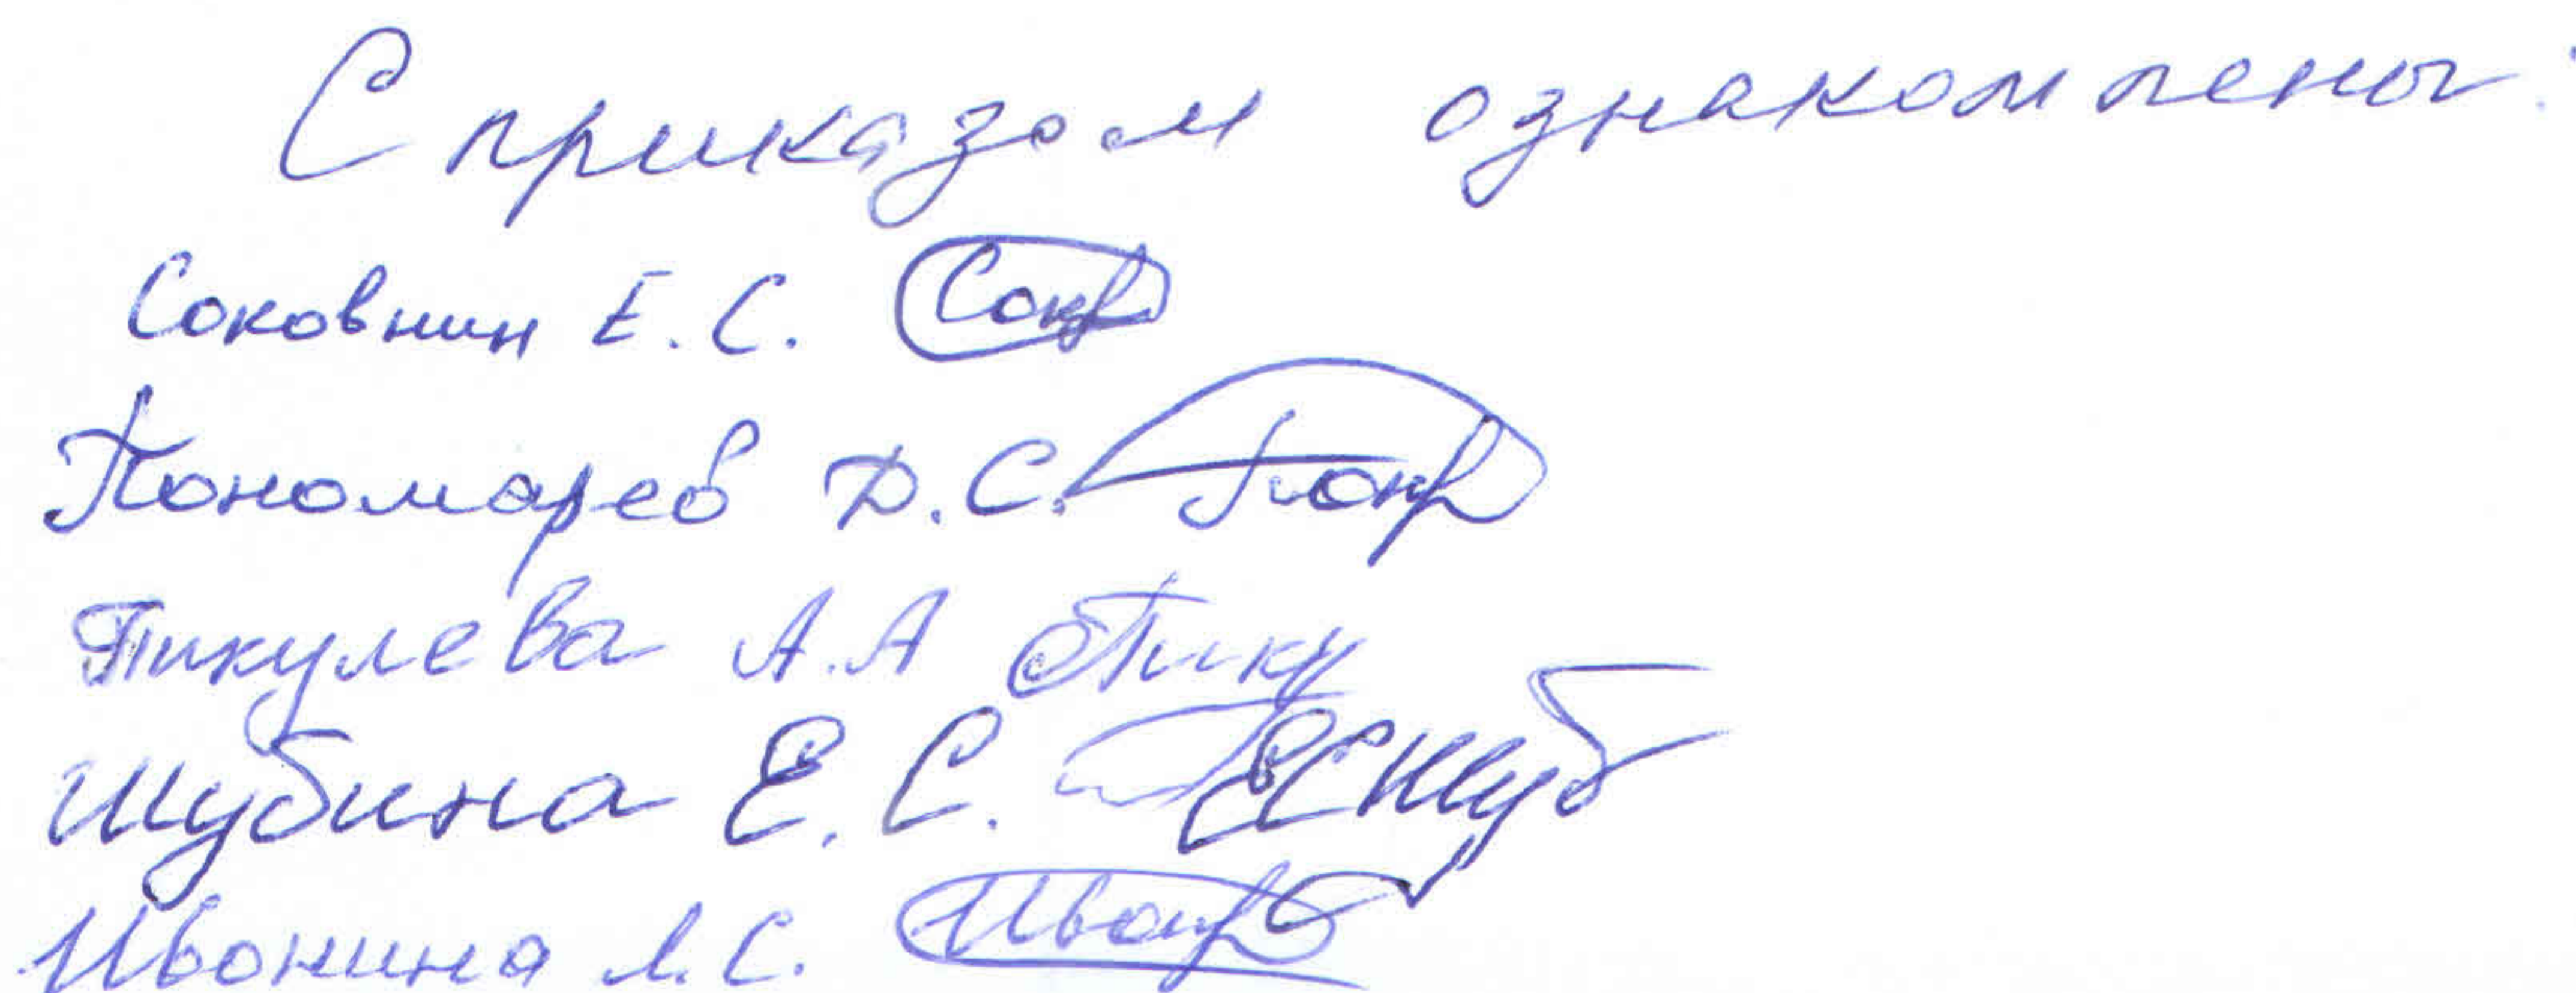 С приказом ознакомлены:
Соковнин Е.С.
Пономарев Д.С.
Пикулева А.А Пику
Шубина Е.С. ЕСШуб
Ивонина Л.С.